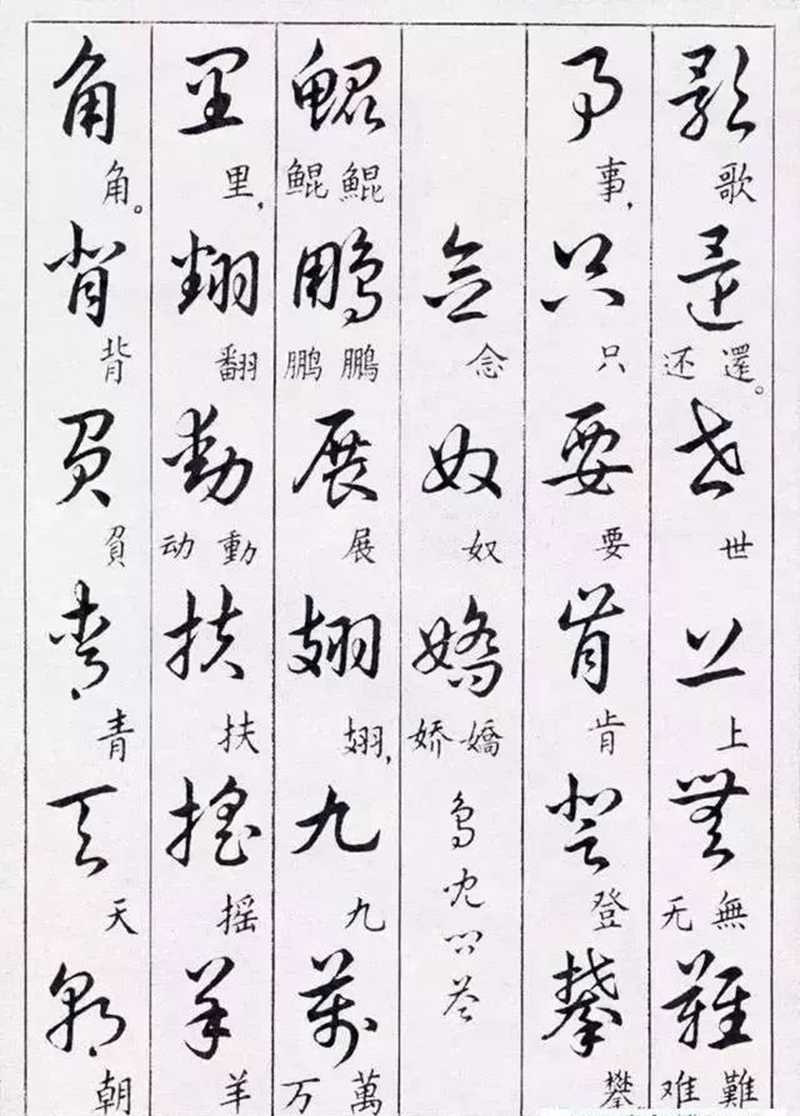 歌還世上無難
歌 還还。 世 上 無无 難难
事只要肯登攀
事， 只 要 肯 登 攀
念奴嬌 鸟儿问答
念 奴 嬌娇
鯤鵬展翅九萬
鯤鲲 鵬鹏 展 翅， 九 萬万
里翻動扶摇羊
里， 翻 動动 扶 摇 羊
角背負青天朝
角。 背 負 青 天 朝